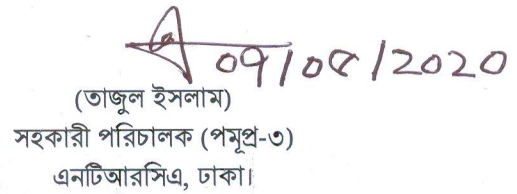 09/08/2020
(তাজুল ইসলাম)
সহকারী পরিচালক (পমূপ্র-৩)
এনটিআরসিএ, ঢাকা।